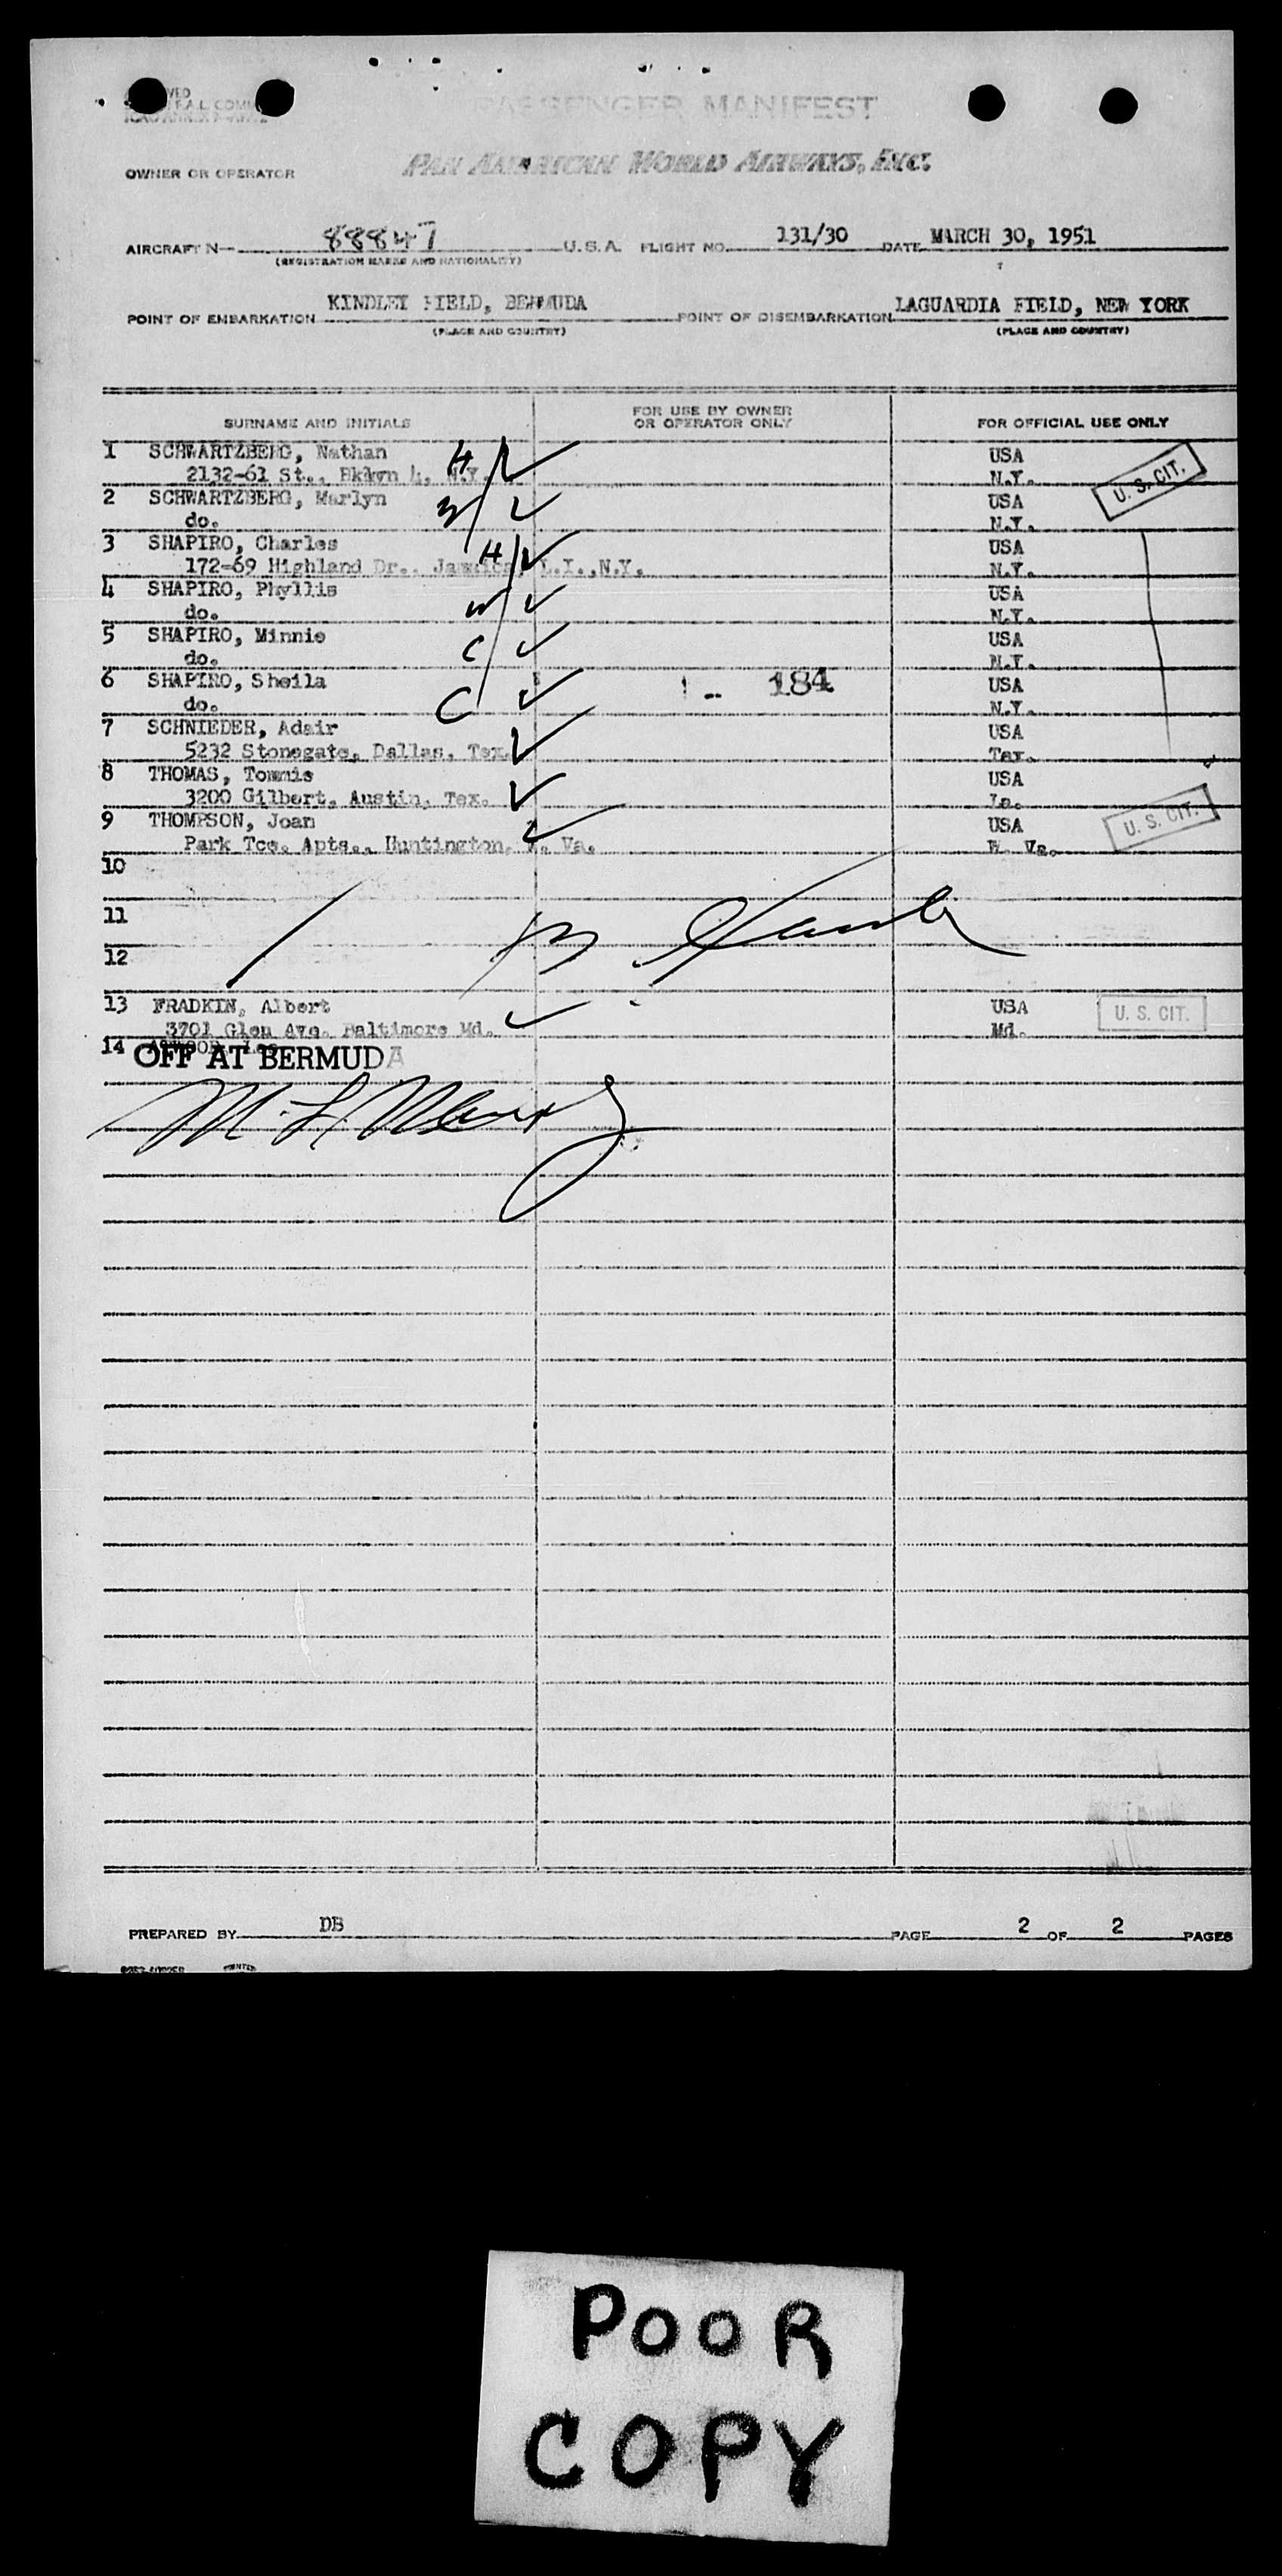 PASSENGER MANIFEST
OWNER OR OPERATOR PAN AMERICAN WORLD AIRWAYS, INC.
AIRCRAFT N- 88847 U.S.A. FLIGHT NO. 131/30 DATE MARCH 30, 1951
(REGISTRATION MARKS AND NATIONALITY)
POINT OF EMBARKATION KINDLEY FIELD, BERMUDA POINT OF DISEMBARKATION LAGUARDIA FIELD, NEW YORK
(PLACE AND COUNTRY) (PLACE AND COUNTRY)
SURNAME AND INITIALS FOR USE BY OWNER OR OPERATOR ONLY FOR OFFICIAL USE ONLY
1 SCHWARTZBERG, Nathan H USA
2132-61 St., Bklyn 4, N.Y. N.Y. U. S. CIT.
2 SCHWARTZBERG, Marlyn W USA
do. N.Y.
3 SHAPIRO, Charles H USA
172-69 Highland Dr., Jamaica, L.I.,N.Y. N.Y.
4 SHAPIRO, Phyllis W USA
do. N.Y.
5 SHAPIRO, Minnie C USA
do. N.Y.
6 SHAPIRO, Sheila 184 USA
do. C N.Y.
7 SCHNIEDER, Adair USA
5232 Stonegate, Dallas, Tex. Tex.
8 THOMAS, Tommie USA
3200 Gilbert, Austin, Tex. La.
9 THOMPSON, Joan USA U. S. CIT.
Park Tce. Apts., Huntington, W. Va. W. Va.
10
11
12
13 FRADKIN, Albert USA U. S. CIT.
3701 Glen Ave. Baltimore Md. Md.
14
OFF AT BERMUDA
PREPARED BY DB PAGE 2 OF 2 PAGES
POOR
COPY